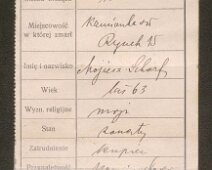 Miejscowość
w której zmarł
Rynek 15
Imię i nazwisko
Mojżesz Scharf
Wiek
lat 63
Wyzn. religijne
mojż
Stan
żonaty
Zatrudnienie
kupiec
Przynależność